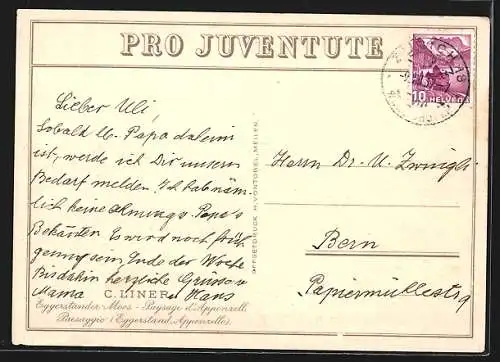 PRO JUVENTUTE
Lieber Uli,
Sobald lb. Papa daheim
ist, werde ich Dir unseren
Bedarf melden. Ich hab näm-
lich keine Ahnung v. Papa's
Bekannten. Es wird noch früh
genug sein Ende der Woche
Bis dahin herzliche Grüsse v
Mama & Hans
C. LINER
Eggerstander-Moos - Paysage d'Appenzell
Paesaggio (Eggerstand, Appenzello).
OFFSETDRUCK H. VONTOBEL, MEILEN.
ZÜRICH 18
10 HELVETIA
Herrn Dr. U. Zwingli
Bern
Papiermühlestr 9